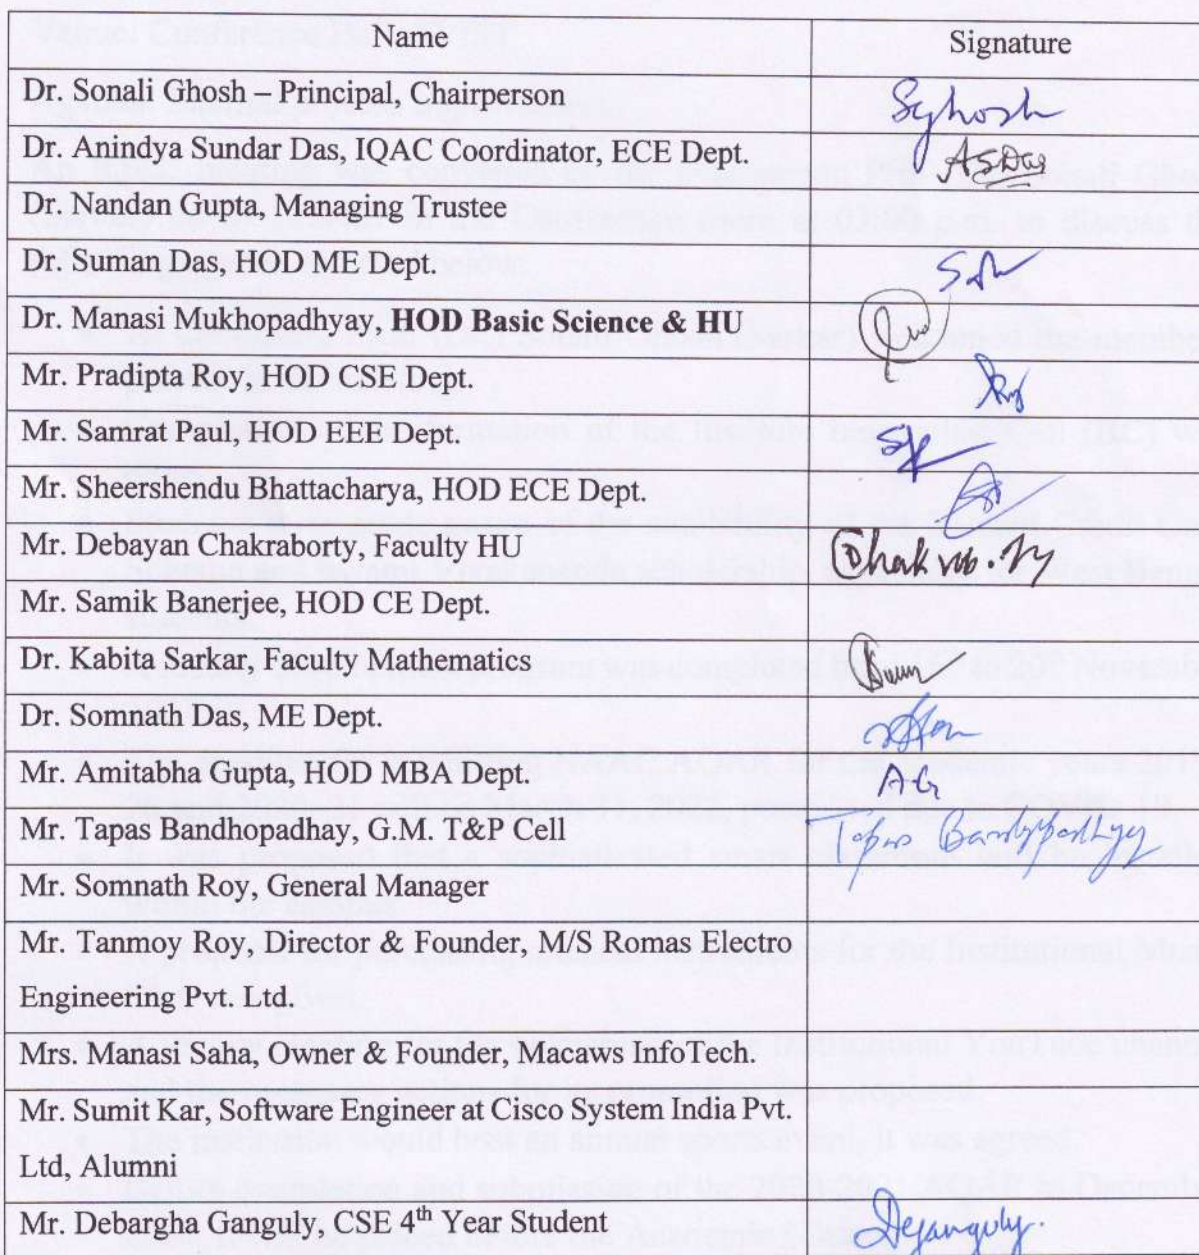 Name Signature
Dr. Sonali Ghosh – Principal, Chairperson SGhosh
Dr. Anindya Sundar Das, IQAC Coordinator, ECE Dept. ASDas
Dr. Nandan Gupta, Managing Trustee
Dr. Suman Das, HOD ME Dept.
Dr. Manasi Mukhopadhyay, HOD Basic Science & HU
Mr. Pradipta Roy, HOD CSE Dept.
Mr. Samrat Paul, HOD EEE Dept.
Mr. Sheershendu Bhattacharya, HOD ECE Dept.
Mr. Debayan Chakraborty, Faculty HU
Mr. Samik Banerjee, HOD CE Dept.
Dr. Kabita Sarkar, Faculty Mathematics
Dr. Somnath Das, ME Dept.
Mr. Amitabha Gupta, HOD MBA Dept. AG
Mr. Tapas Bandhopadhay, G.M. T&P Cell Tapas Bandyopadhyay
Mr. Somnath Roy, General Manager
Mr. Tanmoy Roy, Director & Founder, M/S Romas Electro
Engineering Pvt. Ltd.
Mrs. Manasi Saha, Owner & Founder, Macaws InfoTech.
Mr. Sumit Kar, Software Engineer at Cisco System India Pvt.
Ltd, Alumni
Mr. Debargha Ganguly, CSE 4th Year Student Deganguly.